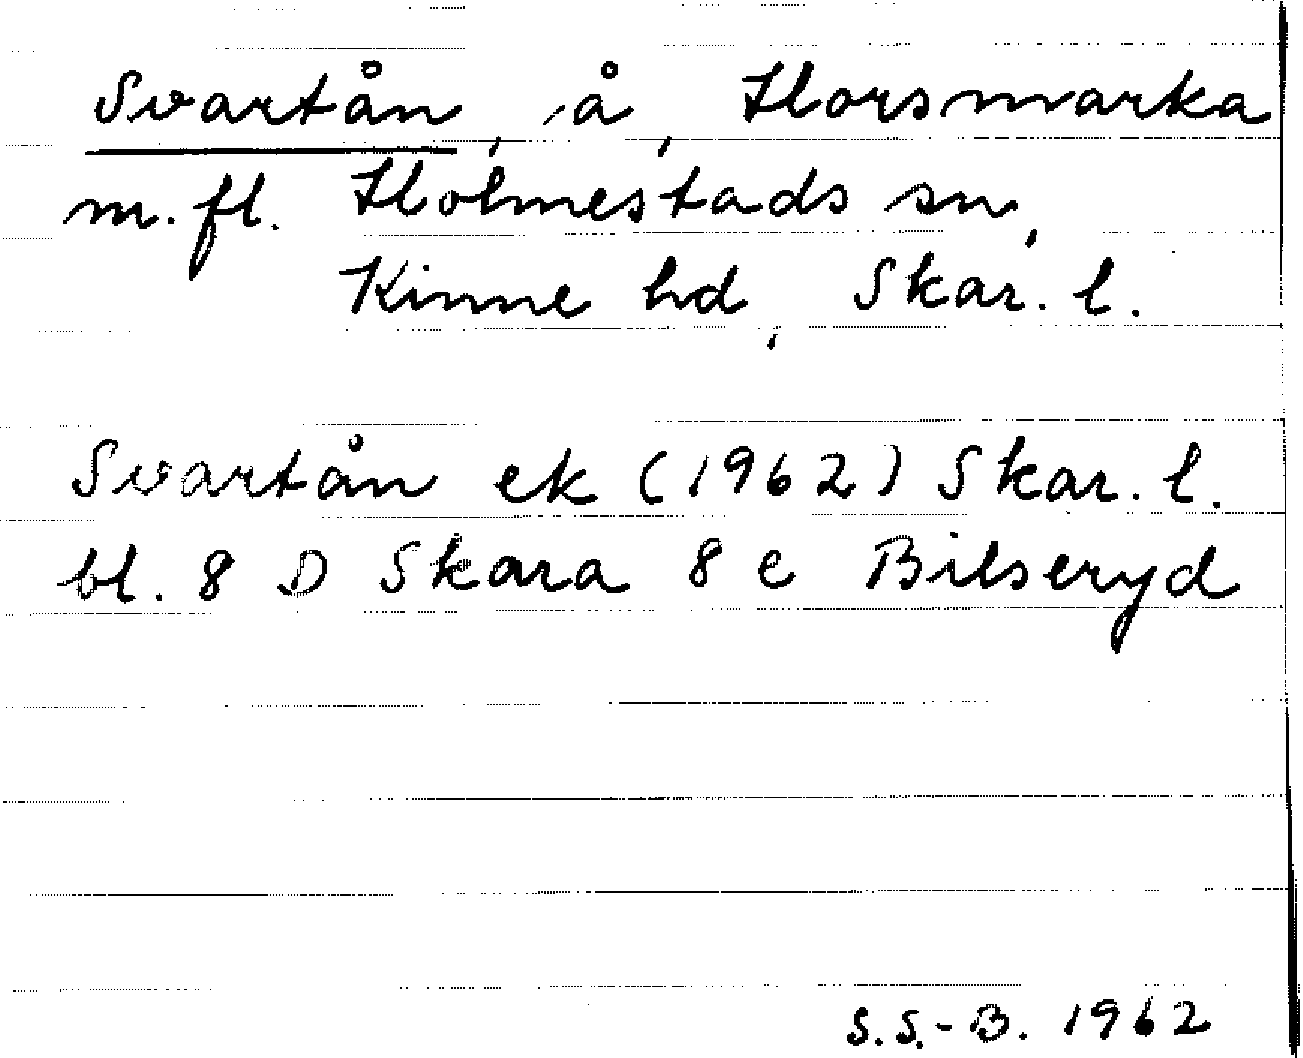 Svartån, å, Horsmarka
m. fl. Holmestads sn,
Kinne hd, Skar. l.
Svartån ek (1962) Skar. l.
bl. 8 D Skara 8 e Bilseryd
S.S.-B. 1962